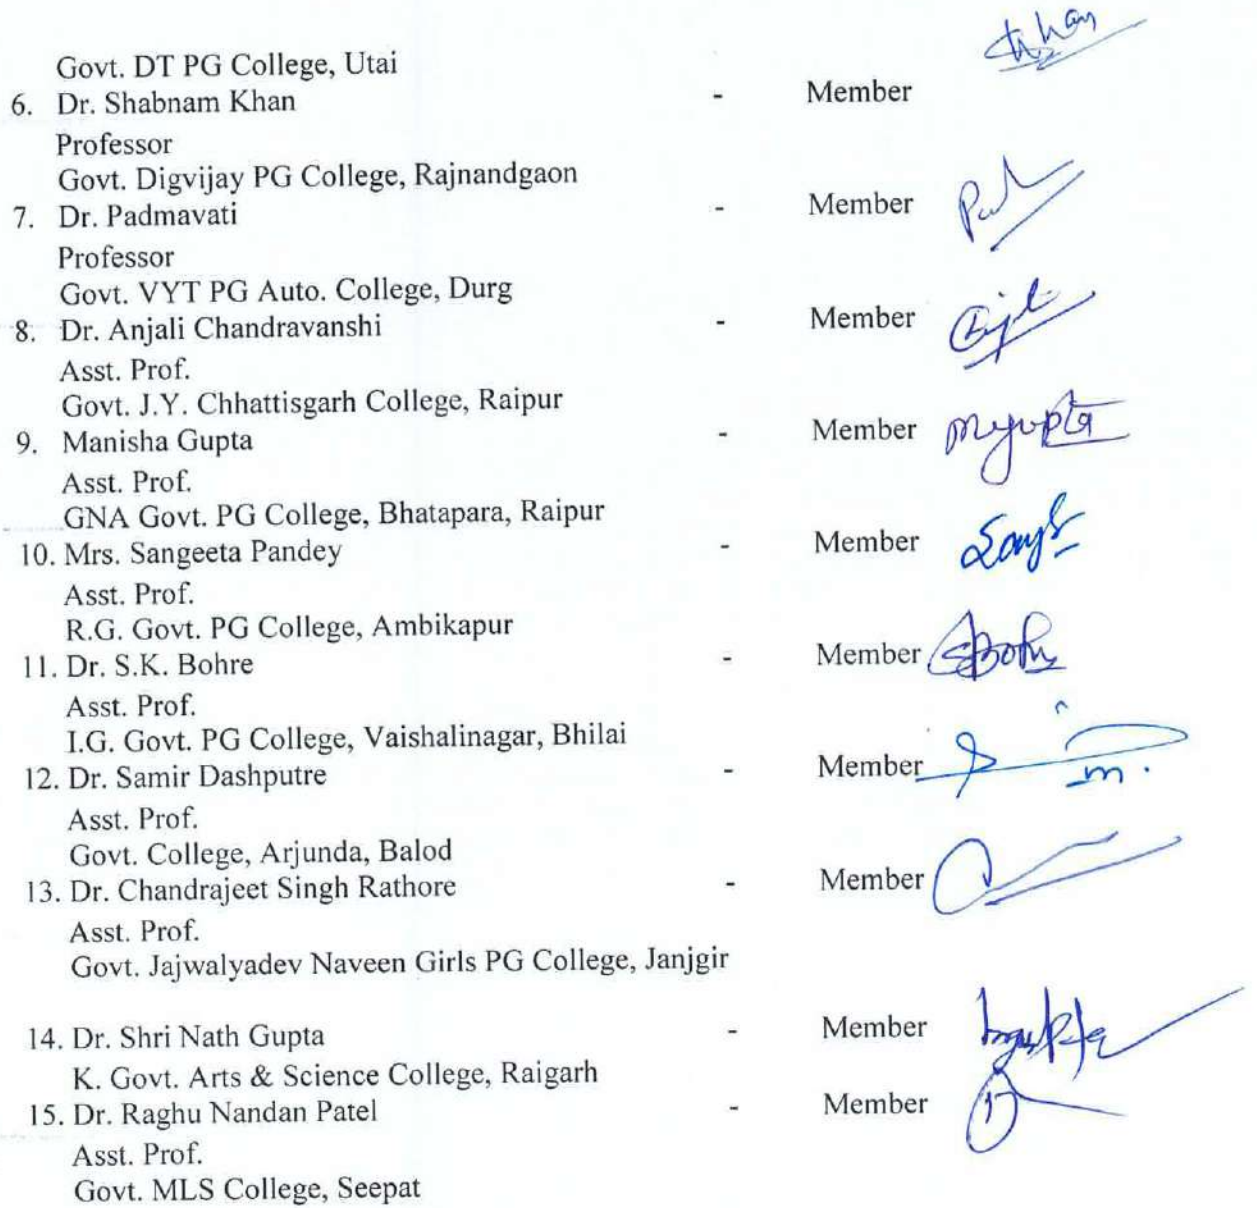 Govt. DT PG College, Utai
Khan
6. Dr. Shabnam Khan - Member
Professor
Govt. Digvijay PG College, Rajnandgaon
7. Dr. Padmavati - Member
Professor
Govt. VYT PG Auto. College, Durg
8. Dr. Anjali Chandravanshi - Member
Asst. Prof.
Govt. J.Y. Chhattisgarh College, Raipur
9. Manisha Gupta - Member Mgupta
Asst. Prof.
GNA Govt. PG College, Bhatapara, Raipur
10. Mrs. Sangeeta Pandey - Member
Asst. Prof.
R.G. Govt. PG College, Ambikapur
11. Dr. S.K. Bohre - Member
Asst. Prof.
I.G. Govt. PG College, Vaishalinagar, Bhilai
12. Dr. Samir Dashputre - Member
Asst. Prof.
Govt. College, Arjunda, Balod
13. Dr. Chandrajeet Singh Rathore - Member
Asst. Prof.
Govt. Jajwalyadev Naveen Girls PG College, Janjgir
14. Dr. Shri Nath Gupta - Member
K. Govt. Arts & Science College, Raigarh
15. Dr. Raghu Nandan Patel - Member
Asst. Prof.
Govt. MLS College, Seepat